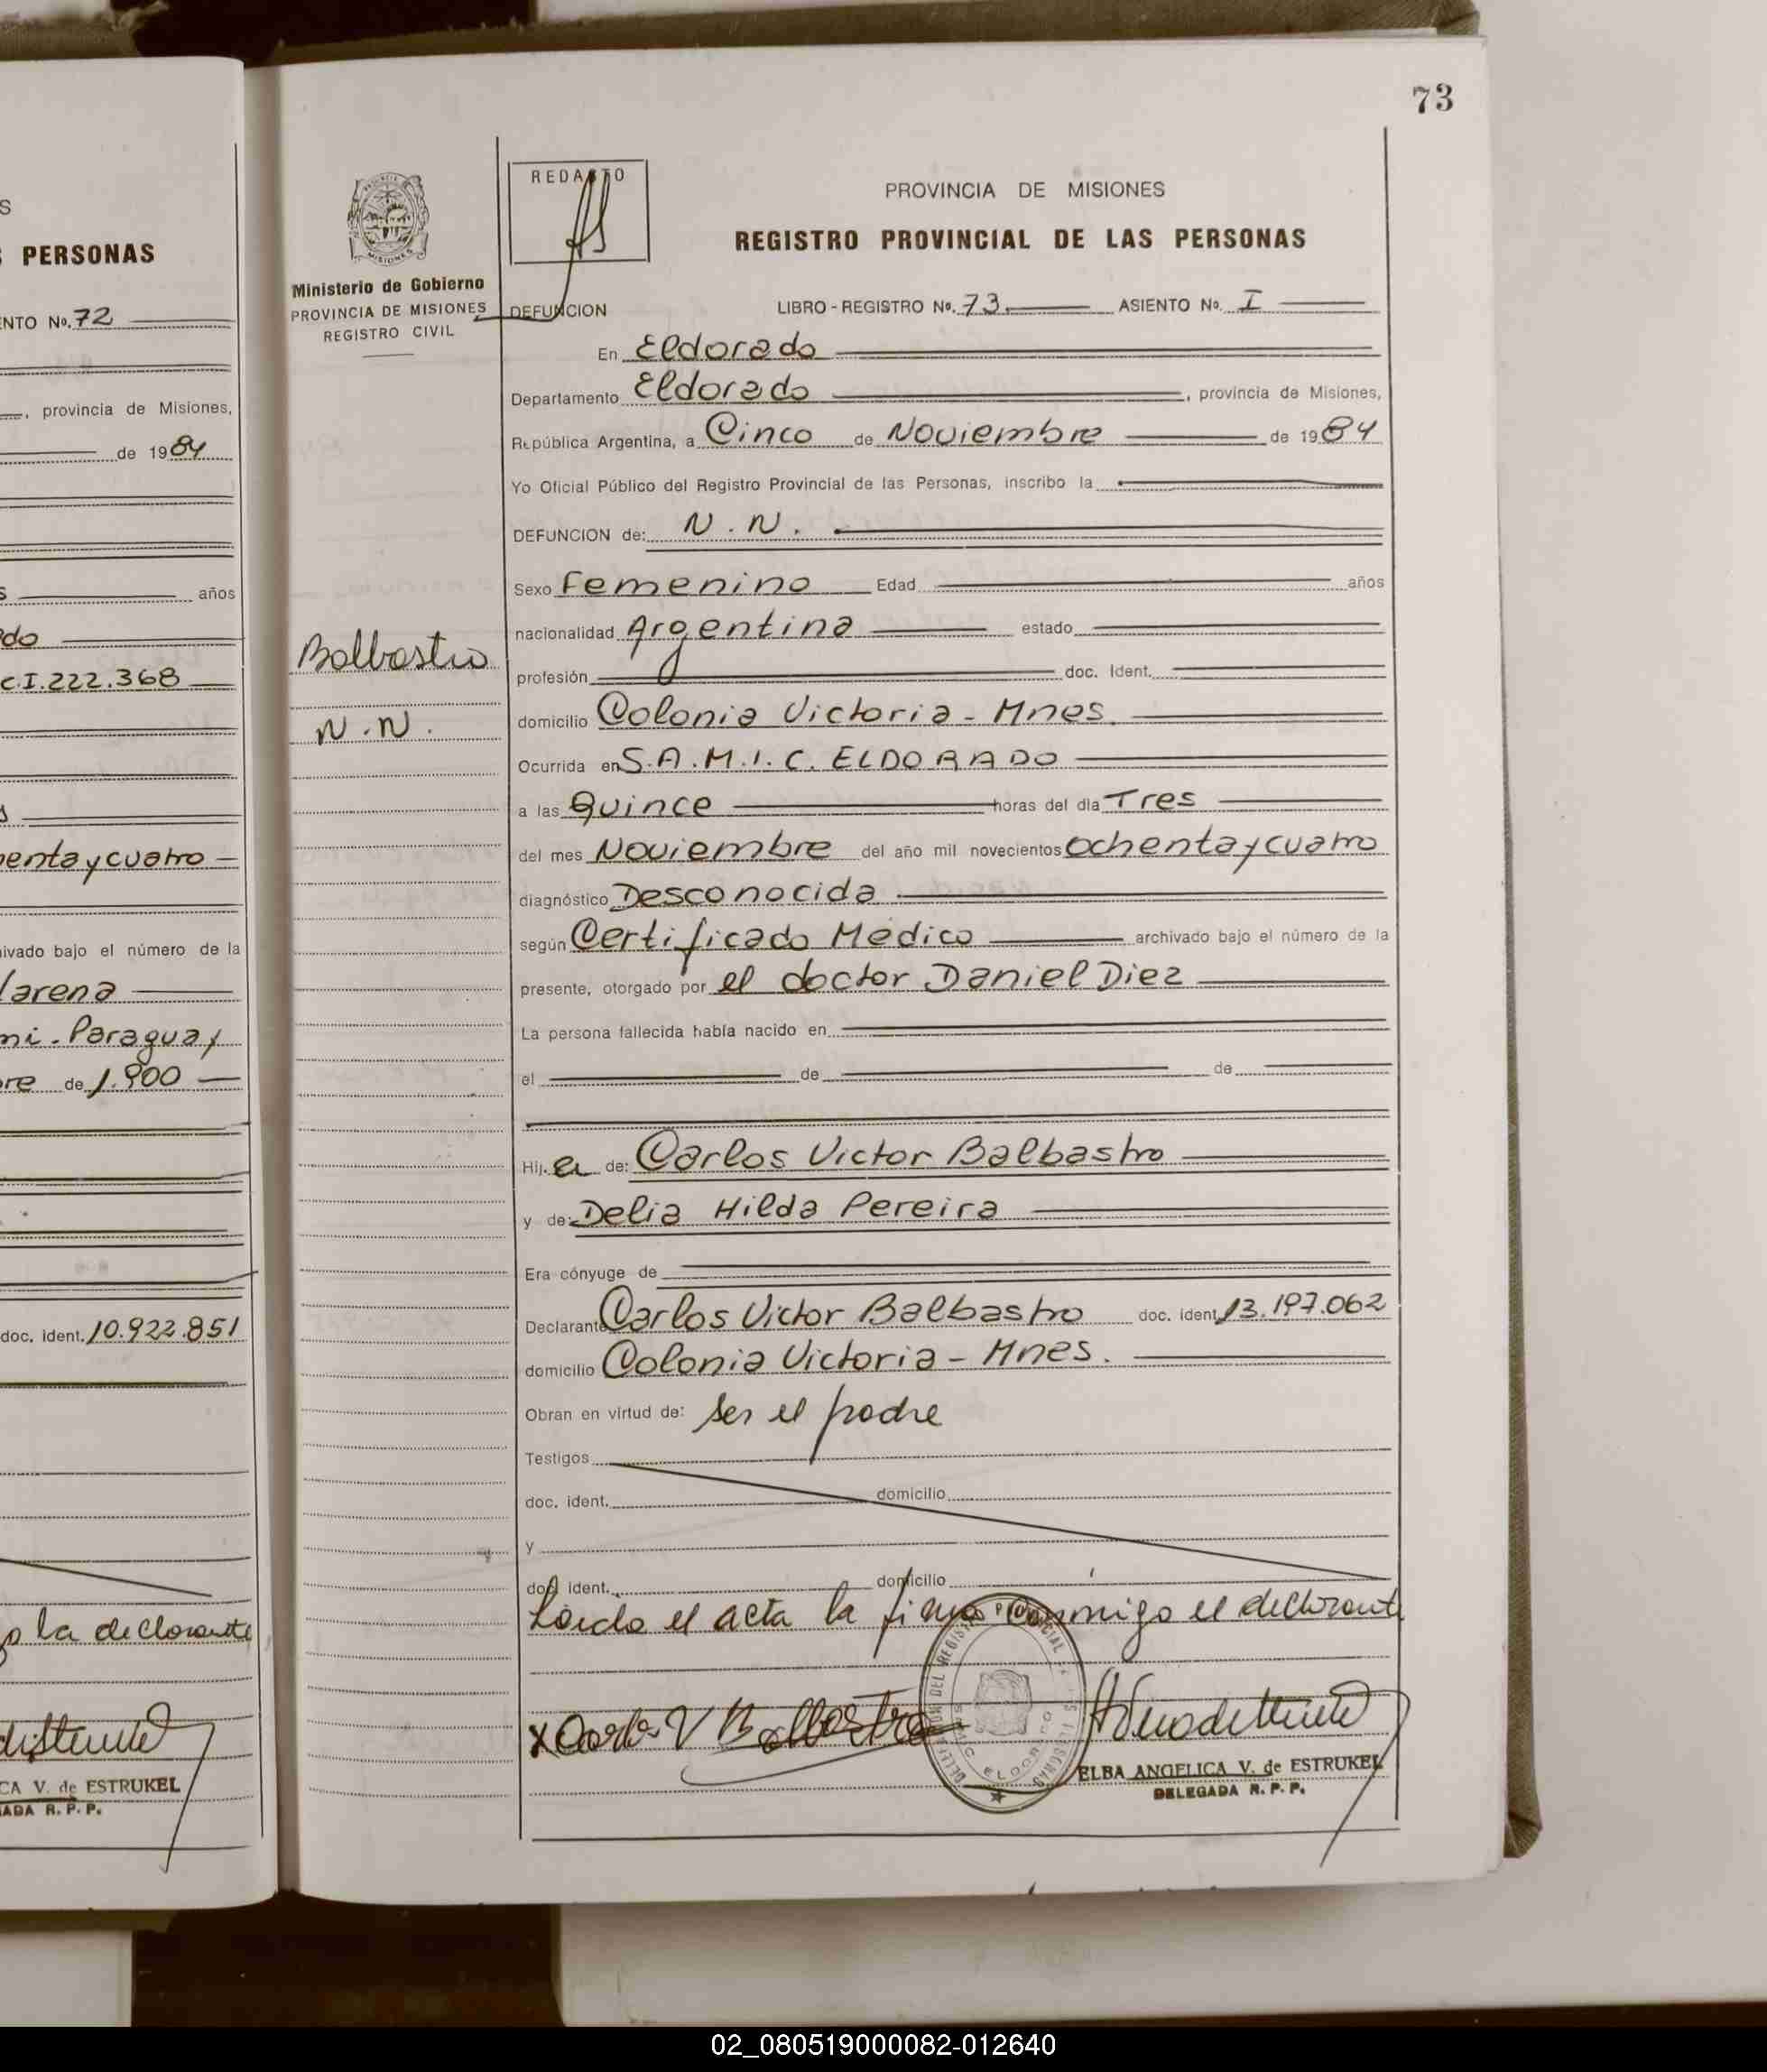 73
S
PERSONAS
NTO No. 72
, provincia de Misiones,
de 1984
años
do
C.I. 222.368
entaycuatro
ivado bajo el número de la
larena
ni - Paraguay
re de 1.900
doc. ident. 10.922.851
o la declarante
CA V. de ESTRUKEL
ADA R. P. P.
Ministerio de Gobierno
PROVINCIA DE MISIONES
REGISTRO CIVIL
Balbastro
N.N.
REDACTO
PROVINCIA DE MISIONES
REGISTRO PROVINCIAL DE LAS PERSONAS
DEFUNCION LIBRO - REGISTRO No. 73. ASIENTO No. I
En Eldorado
Departamento Eldorado, provincia de Misiones,
República Argentina, a Cinco de Noviembre de 1984
Yo Oficial Público del Registro Provincial de las Personas, inscribo la
DEFUNCION de: N.N.
Sexo Femenino Edad años
nacionalidad Argentina estado
profesión doc. Ident.
domicilio Colonia Victoria - Mnes.
Ocurrida en S.A.M.I.C. ELDORADO
a las Quince horas del día Tres
del mes Noviembre del año mil novecientos ochentaycuatro
diagnóstico Desconocida
según Certificado Médico archivado bajo el número de la
presente, otorgado por el doctor Daniel Diez
La persona fallecida había nacido en
el de de
Hij. a de: Carlos Victor Balbastro
y de: Delia Hilda Pereira
Era cónyuge de
Declarante Carlos Victor Balbastro doc. ident. 13.197.062
domicilio Colonia Victoria - Mnes.
Obran en virtud de: ser el padre
Testigos
doc. ident. domicilio
y
doc. ident. domicilio
Leida el acta la firma conmigo el declarante
x Carlos V Balbastro
ELDORADO
ELBA ANGELICA V. de ESTRUKEL
DELEGADA R. P. P.
02_080519000082-012640